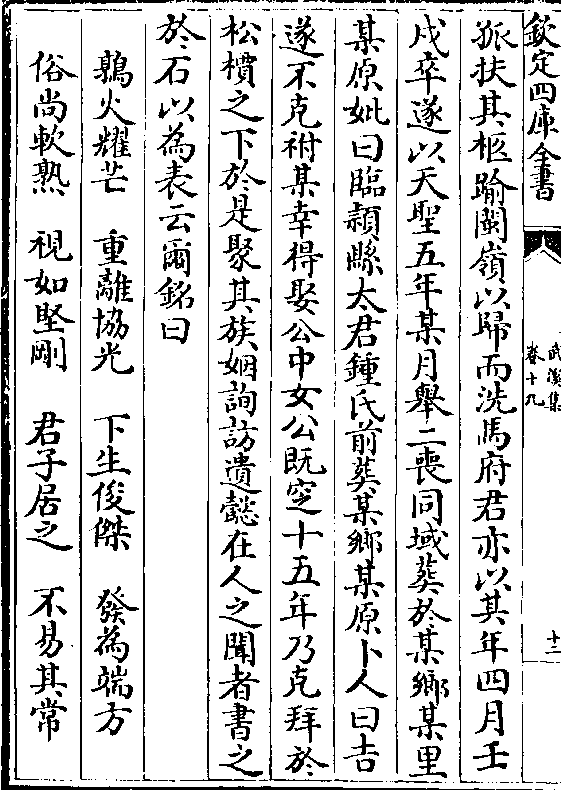 欽定四庫全書
武溪集
卷十九
十三
孤扶其柩踰閩嶺以歸而洗馬府君亦以其年四月壬
戌卒遂以天聖五年某月舉二喪同域葬於某鄉某里
某原妣曰臨潁縣太君鍾氏前葬某鄉某原卜人曰吉
遂不克祔某幸得娶公中女公既窆十五年乃克拜於
松檟之下於是聚其族姻詢訪遺懿在人之聞者書之
於石以為表云爾銘曰
鶉火耀芒　重離協光　下生俊傑　發為端方
俗尚軟熟　視如堅剛　君子居之　不易其常